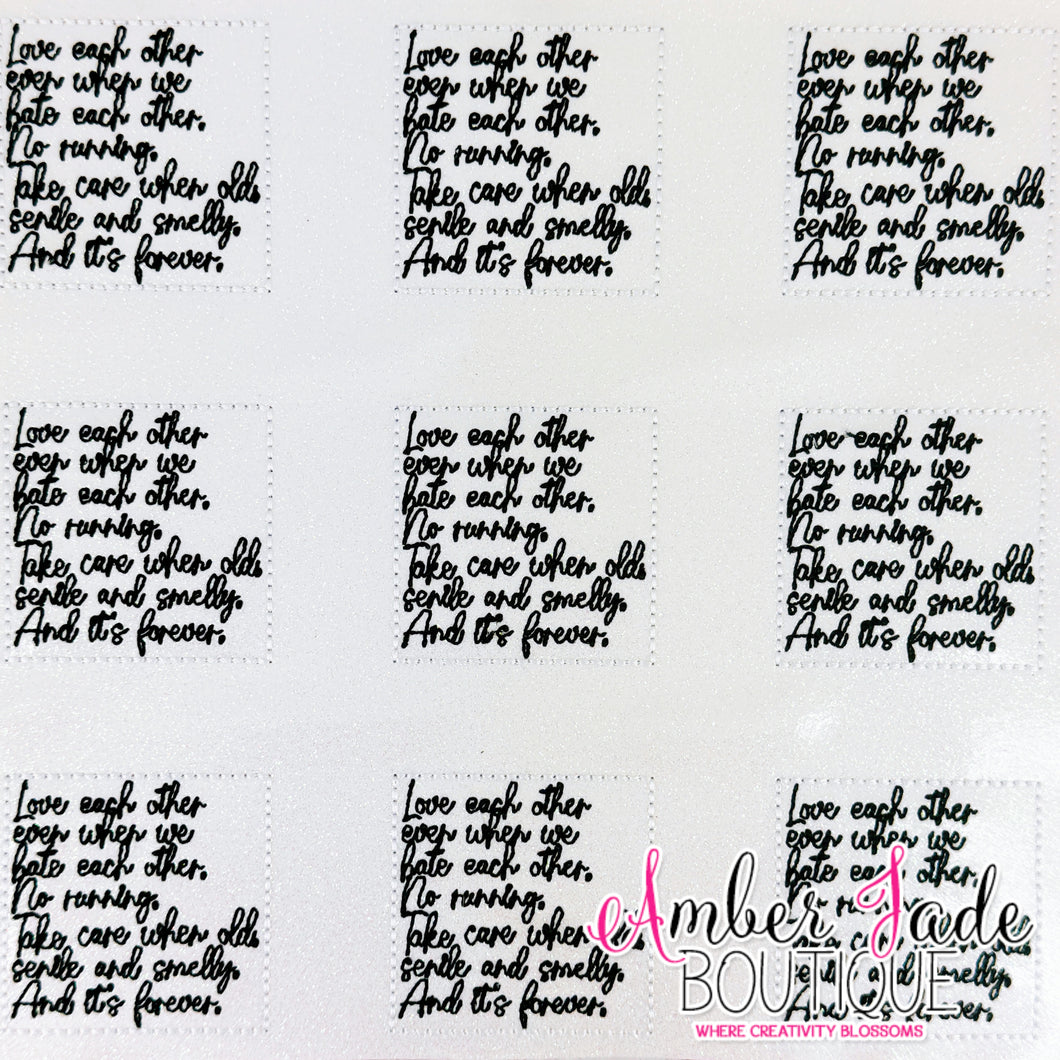 Love each other
even when we
hate each other.
No running.
Take care when old,
senile and smelly.
And it's forever.
Love each other
even when we
hate each other.
No running.
Take care when old,
senile and smelly.
And it's forever.
Love each other
even when we
hate each other.
No running.
Take care when old,
senile and smelly.
And it's forever.
Love each other
even when we
hate each other.
No running.
Take care when old,
senile and smelly.
And it's forever.
Love each other
even when we
hate each other.
No running.
Take care when old,
senile and smelly.
And it's forever.
Love each other
even when we
hate each other.
No running.
Take care when old,
senile and smelly.
And it's forever.
Love each other
even when we
hate each other.
No running.
Take care when old,
senile and smelly.
And it's forever.
Love each other
even when we
hate each other.
No running.
Take care when
senile and smelly.
And it's forever.
Love each other
even when we
hate each other.
No
care
and smelly.
And
Amber Jade
BOUTIQUE
WHERE CREATIVITY BLOSSOMS